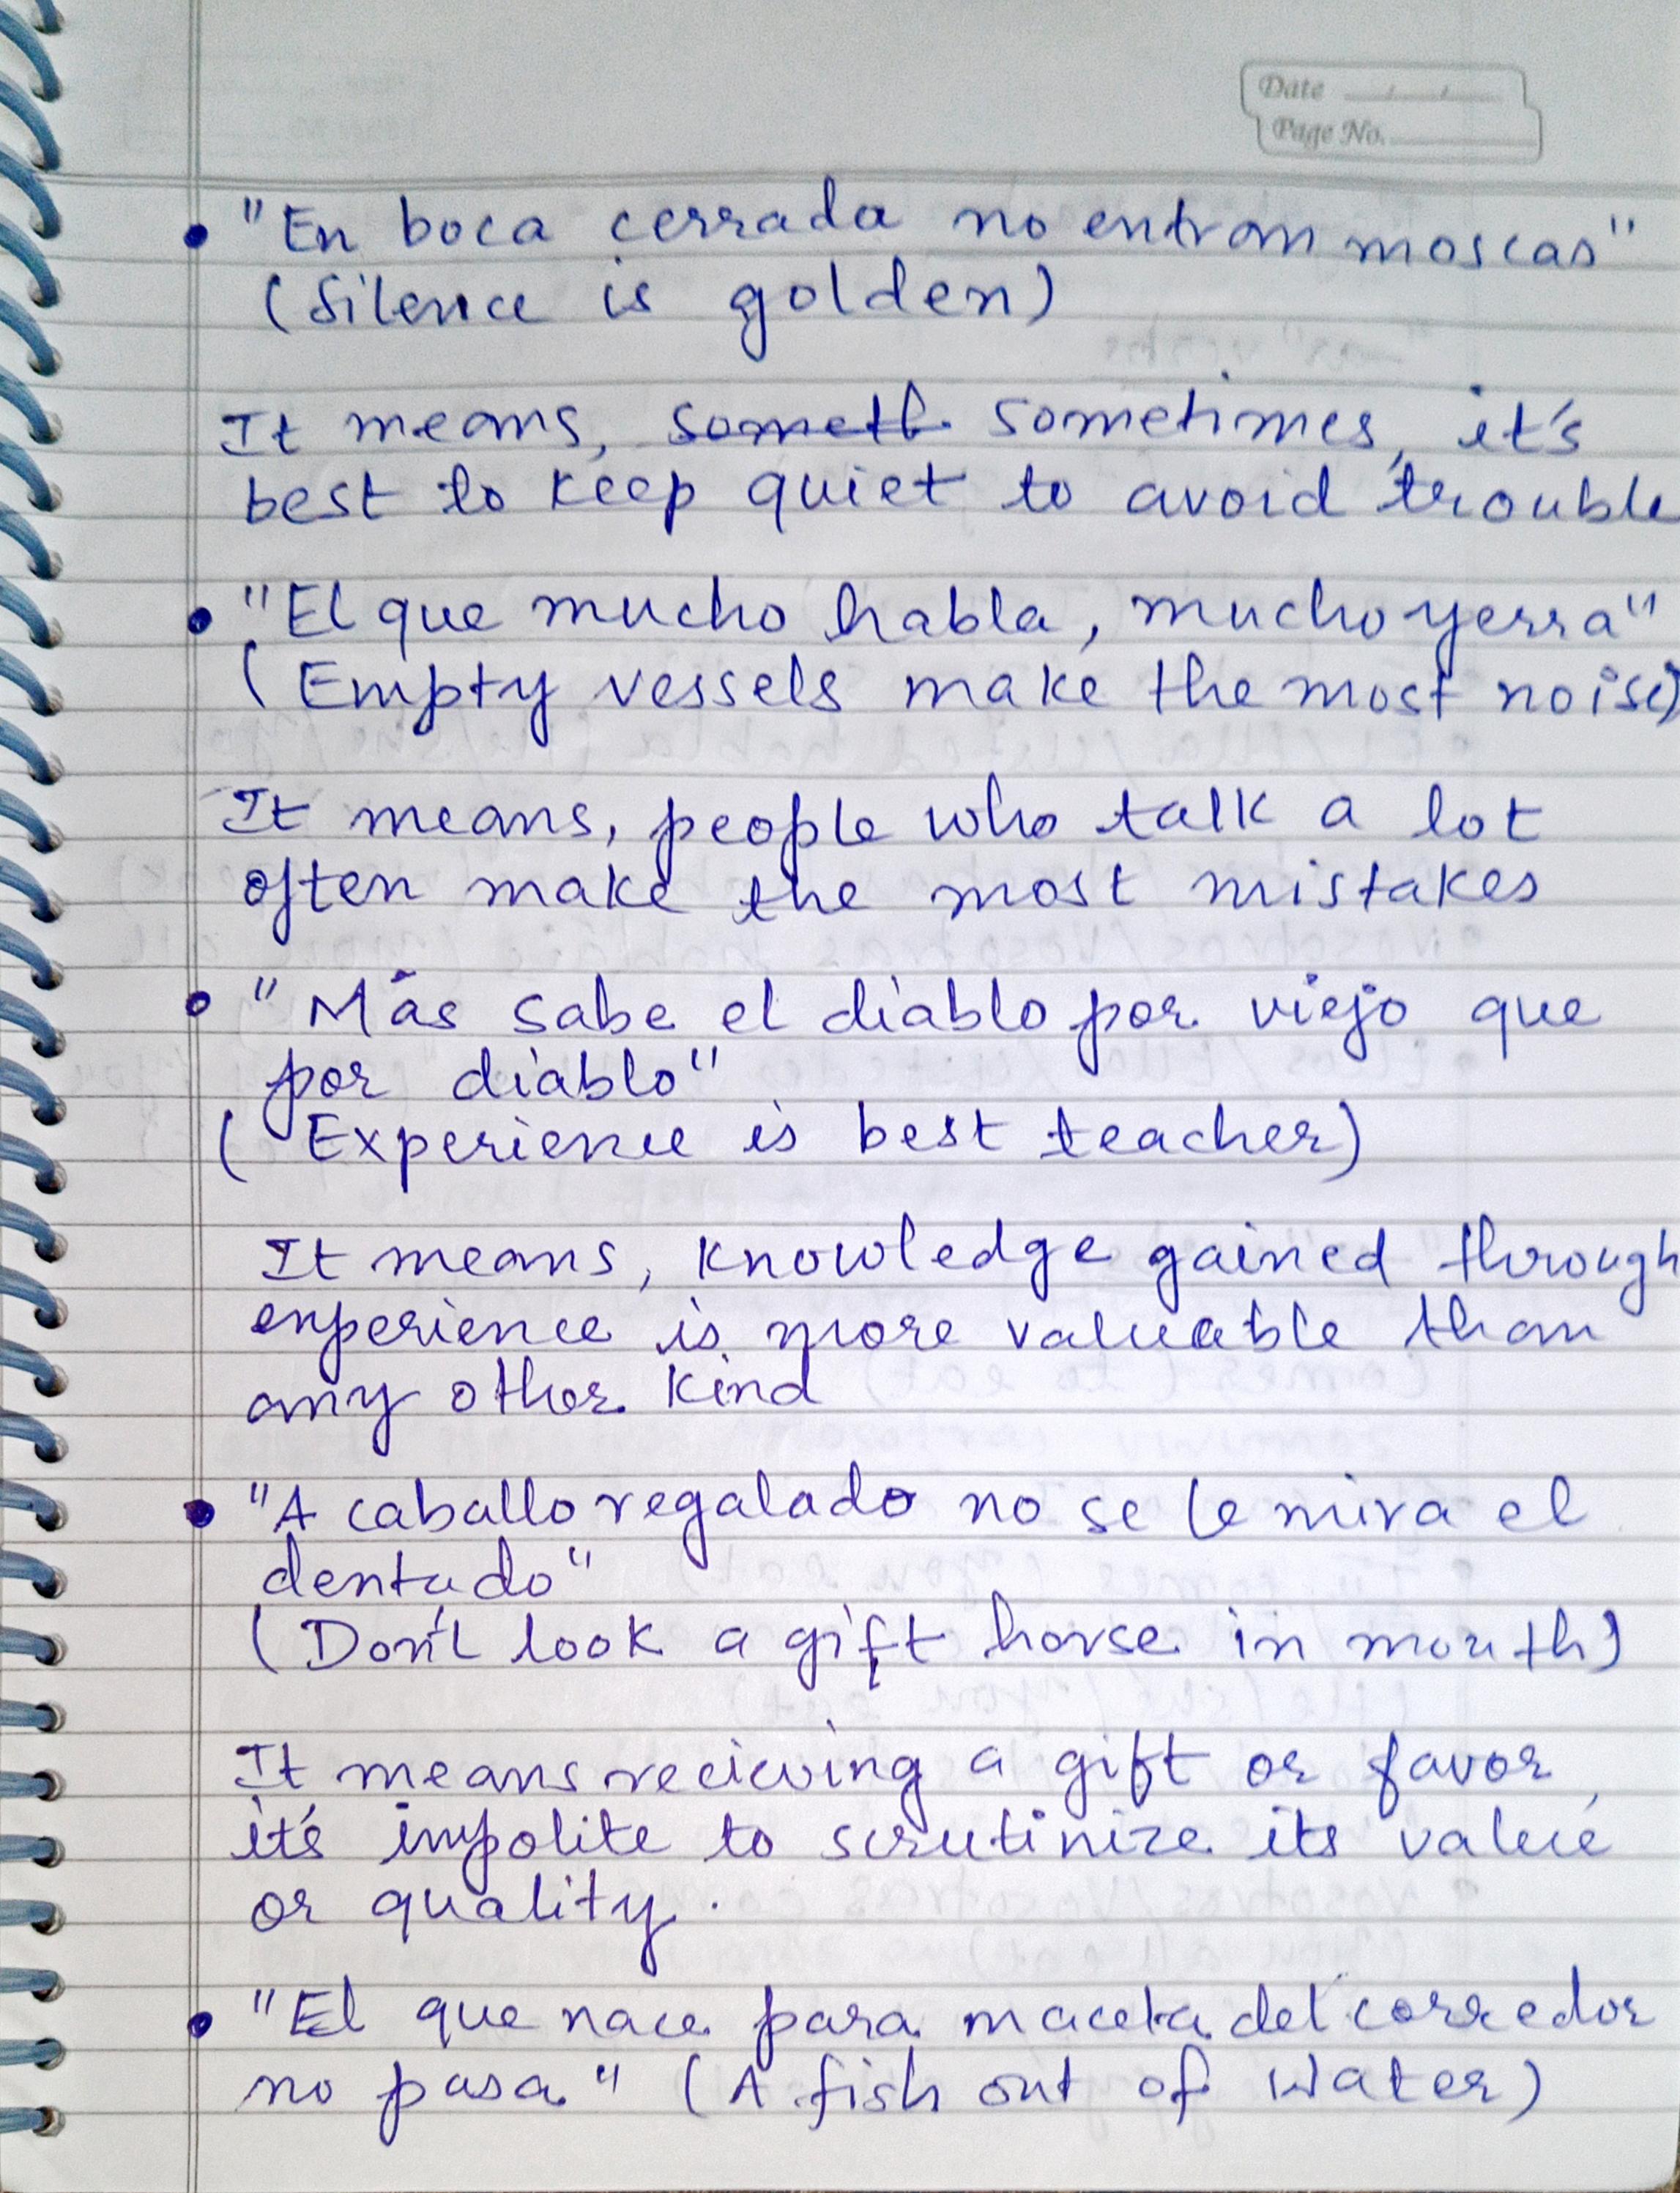 Date
Page No.
• "En boca cerrada no entran moscas"
(Silence is golden)
It means, someth sometimes, it's
best to keep quiet to avoid trouble
• "El que mucho habla, mucho yerra"
(Empty vessels make the most noise)
It means, people who talk a lot
often make the most mistakes
• "Más sabe el diablo por viejo que
por diablo"
(Experience is best teacher)
It means, knowledge gained through
experience is more valuable than
any other kind
• "A caballo regalado no se le mira el
dentado"
(Don't look a gift horse in mouth)
It means recieving a gift or favor,
it's impolite to scrutinize its value
or quality.
• "El que nace para maceta del corredor
no pasa" (A fish out of water)